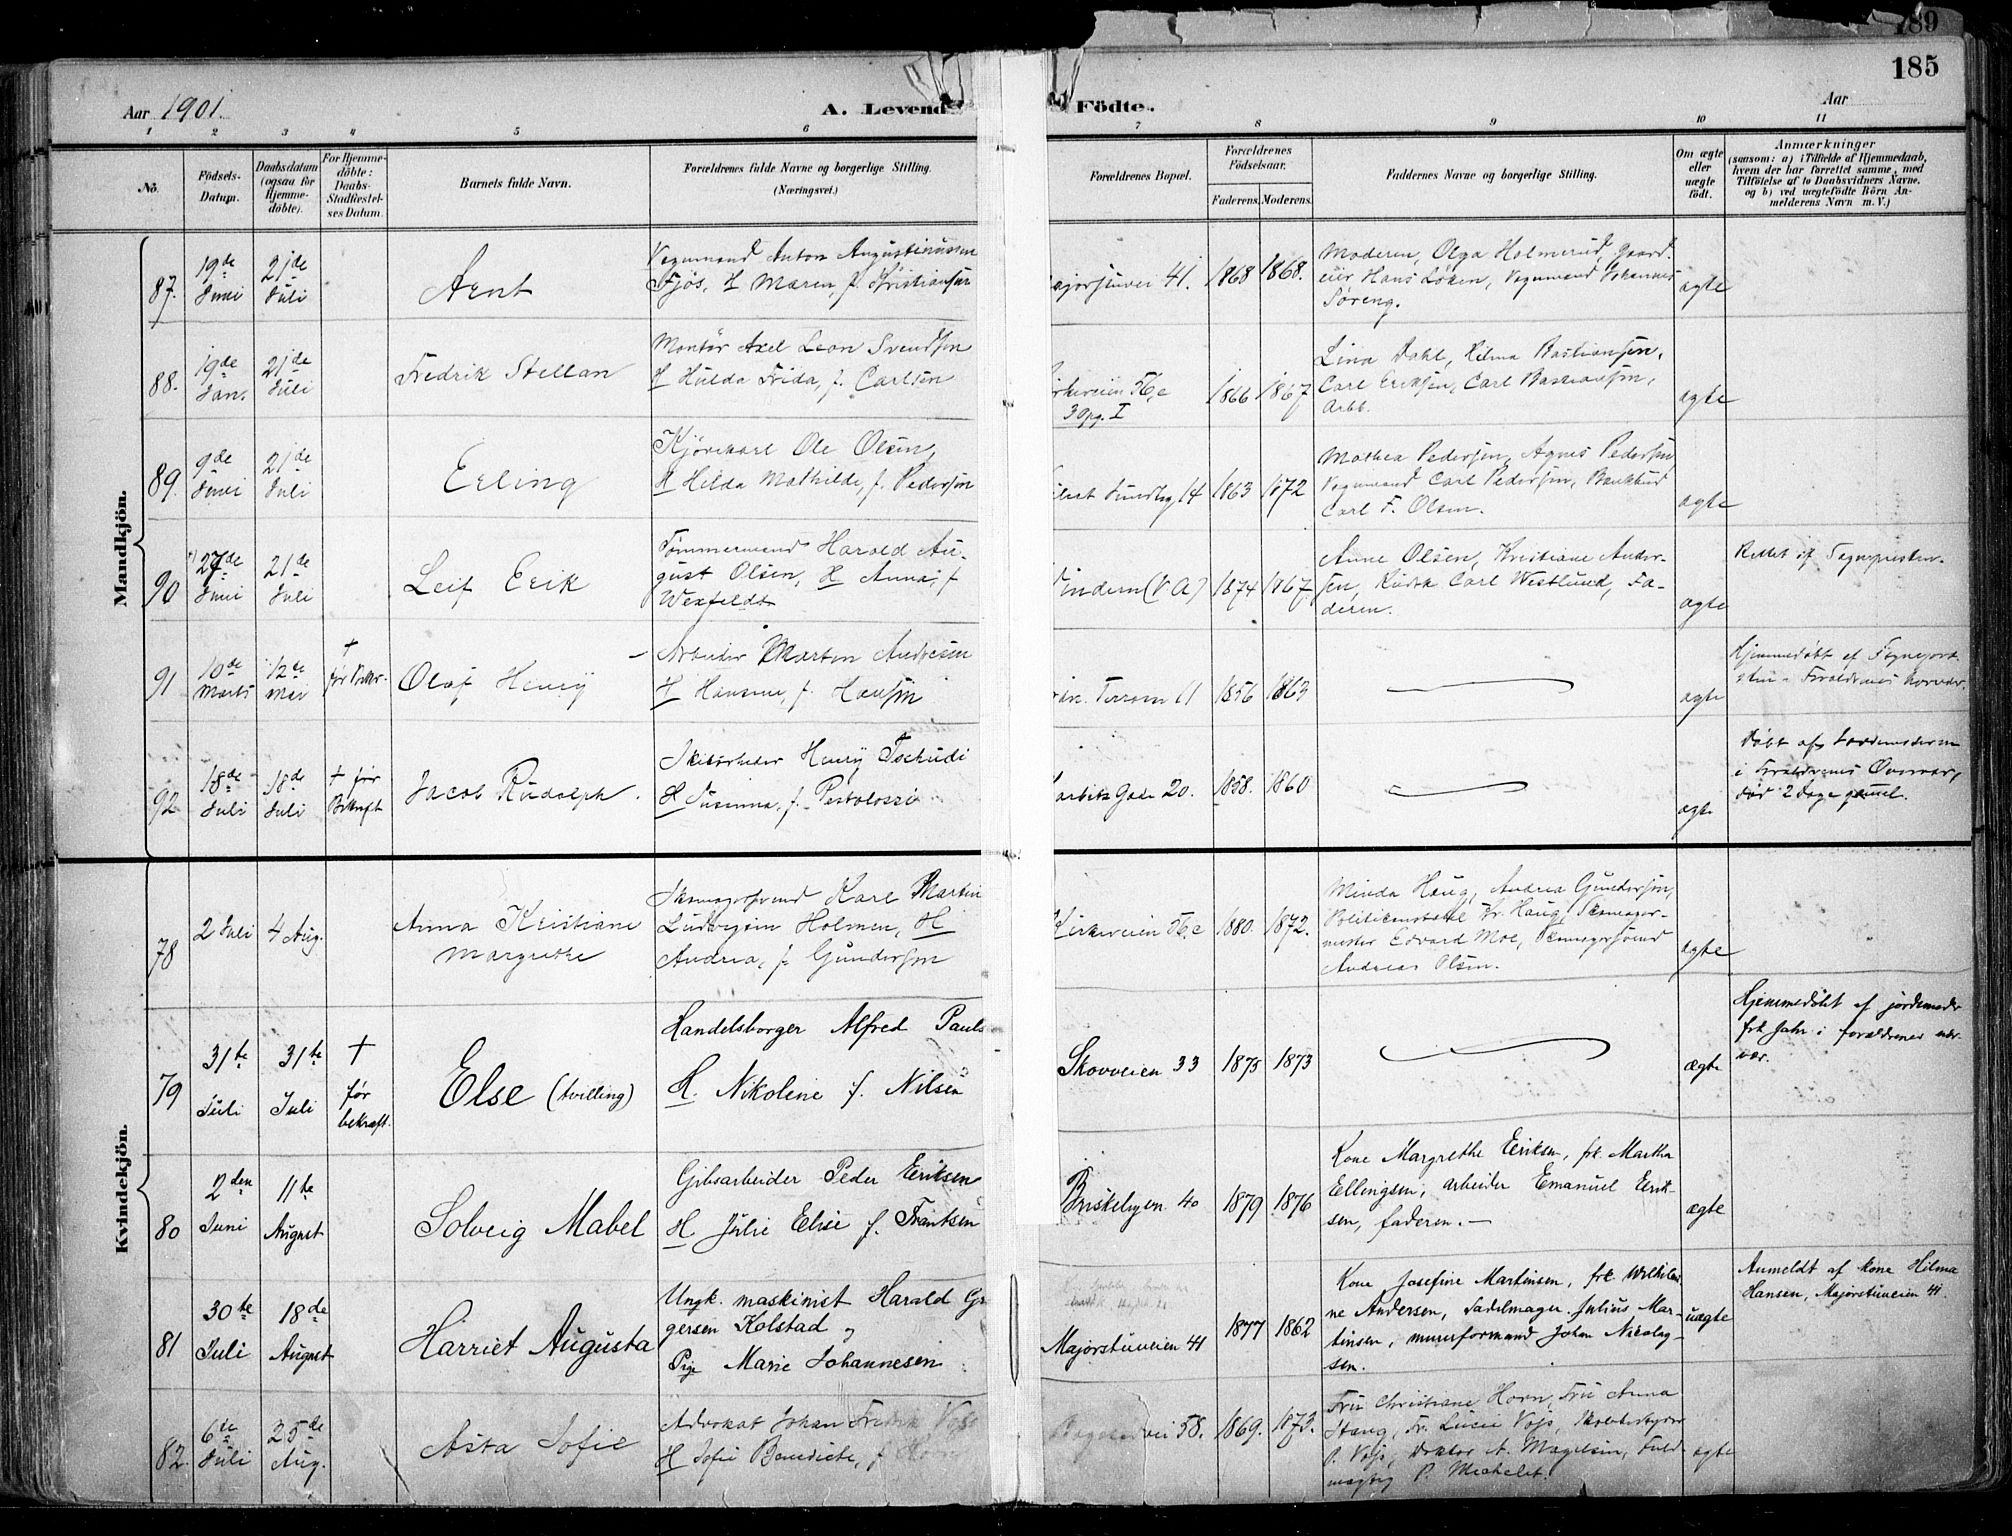 189
185
Aar 1901.
A. Levende Födte.
Aar
1 2 3 4 5 6 7 8 9 10 11
No.
Födsels-Datum.
Daabsdatum (ogsaa for Hjemme-döbte).
For Hjemme-döbte: Daabs-Stadfæstel-ses Datum.
Barnets fulde Navn.
Forældrenes fulde Navne og borgerlige Stilling.
(Næringsvei.)
Forældrenes Bopæl.
Forældrenes Födselsaar.
Faderens. Moderens.
Faddernes Navne og borgerlige Stilling.
Om ægte eller uægte födt.
Anmærkninger
(saasom: a) i Tilfælde af Hjemmedaab,
hvem der har forrettet samme, med
Tilföielse af to Daabsvidners Navne,
og b) ved uægtefödte Börn An-
melderens Navn m. V.)
Mandkjön.
87. 19de Juni 21de Juli
Arnt
Vognmand Anton Augustinussen
Fjøs, H Maren, f. Kristiansen
41. 1868 1868.
Moderen, Olga Holmerud, Gaard-
eier Hans Løken, Vognmand Johannes
Søreng.
ægte
88. 19de Jan. 21de Juli
Fredrik Stellan
Montør Axel Leon Svendsen
H Hulda Frida, f. Carlsen
56,c
3 Opg. I
1866 1867
Lina Dahl, Hilma Bastiansen,
Carl Eriksen, Carl Bastiansen,
Arbb.
ægte
89. 9de Juni 21de Juli
Erling
Kjørekarl Ole Olsen,
H Hilda Mathilde, f. Pedersen
14 1863 1872
Mathea Pedersen, Agnes Pedersen
Vognmand Carl Pedersen,
Carl F. Olsen.
ægte
90 27de Juni 21de Juli
Leif Erik
Tømmermand Harold Au-
gust Olsen, H Anna, f
Wexfeldt
Vindern (V. A) 1874 1867.
Anne Olsen, Kristiane Ander-
sen, Kudsk Carl Westlund, Fa-
deren.
ægte
Rettet af Sognepresten.
91 10de Marts 12te Mai
† før
Olaf Henry
Arbeider Morten Andresen
H Hansine, f. Hansen
11 1856 1863
ægte
Hjemmedøbt af
92 18de Juli 18de Juli
† før Bekræft
Jacob Rudolph.
Henry Tschudi
H Susanna, f. Pestolossi
Gade 20. 1858. 1860
ægte
Døbt af Jordemoderen
i Forældrenes Overvær,
død 2 Dage gammel.
Kvindekjön.
78 2 Juli 4 Aug.
Anna Kristiane
Margrethe
Skomagersvend Karl Martin
Ludvigsen Holmen, H
Andrea, f Gundersen
Kirkeveien 56,c 1880. 1872.
Minda Haug, Andrea Gundersen,
Politikonstabel Kr. Haug, Skomager-
mester Edvard Moe, Skomagersvend
Andreas Olsen.
ægte
79 31te Juli 31te Juli
† før bekræft.
Else (tvilling)
Handelsborger Alfred Pauls
H. Nikoline f. Nilsen
Skovveien 33 1875 1873
ægte
Hjemmedøbt af jordemoder
frk Jahr i forældrenes nær-
vær.
80 2den Juni 11te August
Solveig Mabel
Gibsarbeider Peder Eriksen
H Julie Elise f. Frantsen
Briskebyen 40 1879 1876
Kone Margrethe Eriksen, frk. Martha
Ellingsen, arbeider Emanuel Erik-
sen, faderen.
ægte
81 30te Juli 18de August
Harriet Augusta
Ungk. maskinist Harald Gr
gersen Kolstad og
Pige Marie Johannesen
Majorstuveien 41 1877 1862
Kone Josefine Martinsen, frk Wilhelmi-
ne Andersen, Sadelmager Julius Mar-
tinsen, murerformand Johan Nicolay-
sen.
uægte
Anmeldt af kone Hilma
Hansen, Majorstuveien 41.
82. 6te Juli 25de Aug.
Asta Sofie
Advokat Johan Fredrik Vojs
H Sofie Benedicte, f Horn
58. 1869. 1873.
Fru Christiane Horn, Fru Anna
Stang, Fr. Lucie Vojs,
P. Vojs, Doktor A. Magelsen, Fuld-
mægtig P. Michelet.
ægte